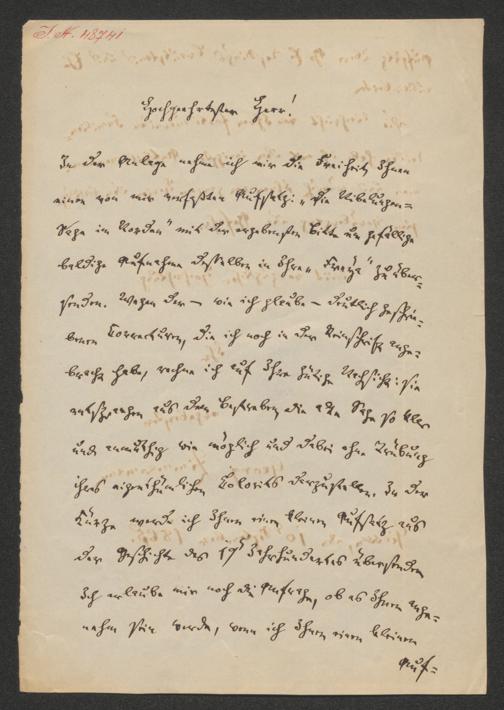 I. N. 48741
Hochgeehrtester Herr!
In der Anlage nehme ich mir die Freiheit, Ihnen
einen von mir verfaßten Aufsatz: „Die Nibelungen=
Sage im Norden" mit der ergebensten Bitte um gefällige
baldige Aufnahme desselben in Ihre „Freya" zu über-
senden. Wegen der – wie ich glaube – deutlich geschrie-
benen Correcturen, die ich noch in der Reinschrift ange-
bracht habe, rechne ich auf Ihre gütige Nachsicht: sie
entsprangen aus dem Bestreben, die alte Sage so klar
und anmuthig wie möglich und dabei ohne Trübung
ihres eigenthümlichen Colorits darzustellen. In der
Kürze werde ich Ihnen einen kleinen Aufsatz aus
der Geschichte des 19t Jahrhundertes übersenden
Ich erlaube mir noch die Anfrage, ob es Ihnen ange=
nehm sein werde, wenn ich Ihnen einen kleinen
Auf=